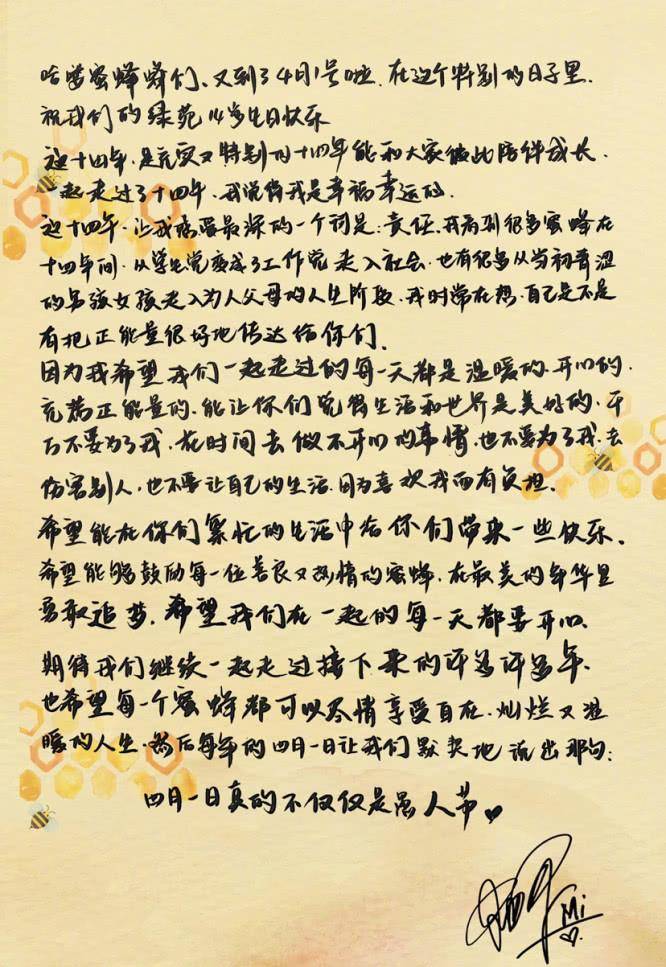 哈喽蜜蜂蜂们、又到了4月1号啦、在这个特别的日子里、
祝我们的绿苑14岁生日快乐
这十四年、是充实又特别的十四年能和大家彼此陪伴成长、
一起走过了十四年、我觉得我是幸福幸运的.
这十四年、让我感受最深的一个词是:责任、我看到很多蜜蜂在
十四年间、从学生党变成了工作党走入社会、也有很多从当初青涩
的男孩女孩走入为人父母的人生阶段、我时常在想、自己是不是
有把正能量很好地传达给你们.
因为我希望我们一起走过的每一天都是温暖的、开心的、
充满正能量的、能让你们觉得生活和世界是美好的、千
万不要为了我、花时间去做不开心的事情、也不要为了我、去
伤害别人、也不要让自己的生活、因为喜欢我而有负担.
希望能在你们繁忙的生活中给你们带来一些快乐、
希望能够鼓励每一位善良又热情的蜜蜂、在最美的年华里
勇敢追梦、希望我们在一起的每一天都要开心、
期待我们继续一起走过接下来的许多许多年、
也希望每一个蜜蜂都可以尽情享受自在、灿烂又温
暖的人生、然后每年的四月一日让我们默契地说出那句:
四月一日真的不仅仅是愚人节
Mi